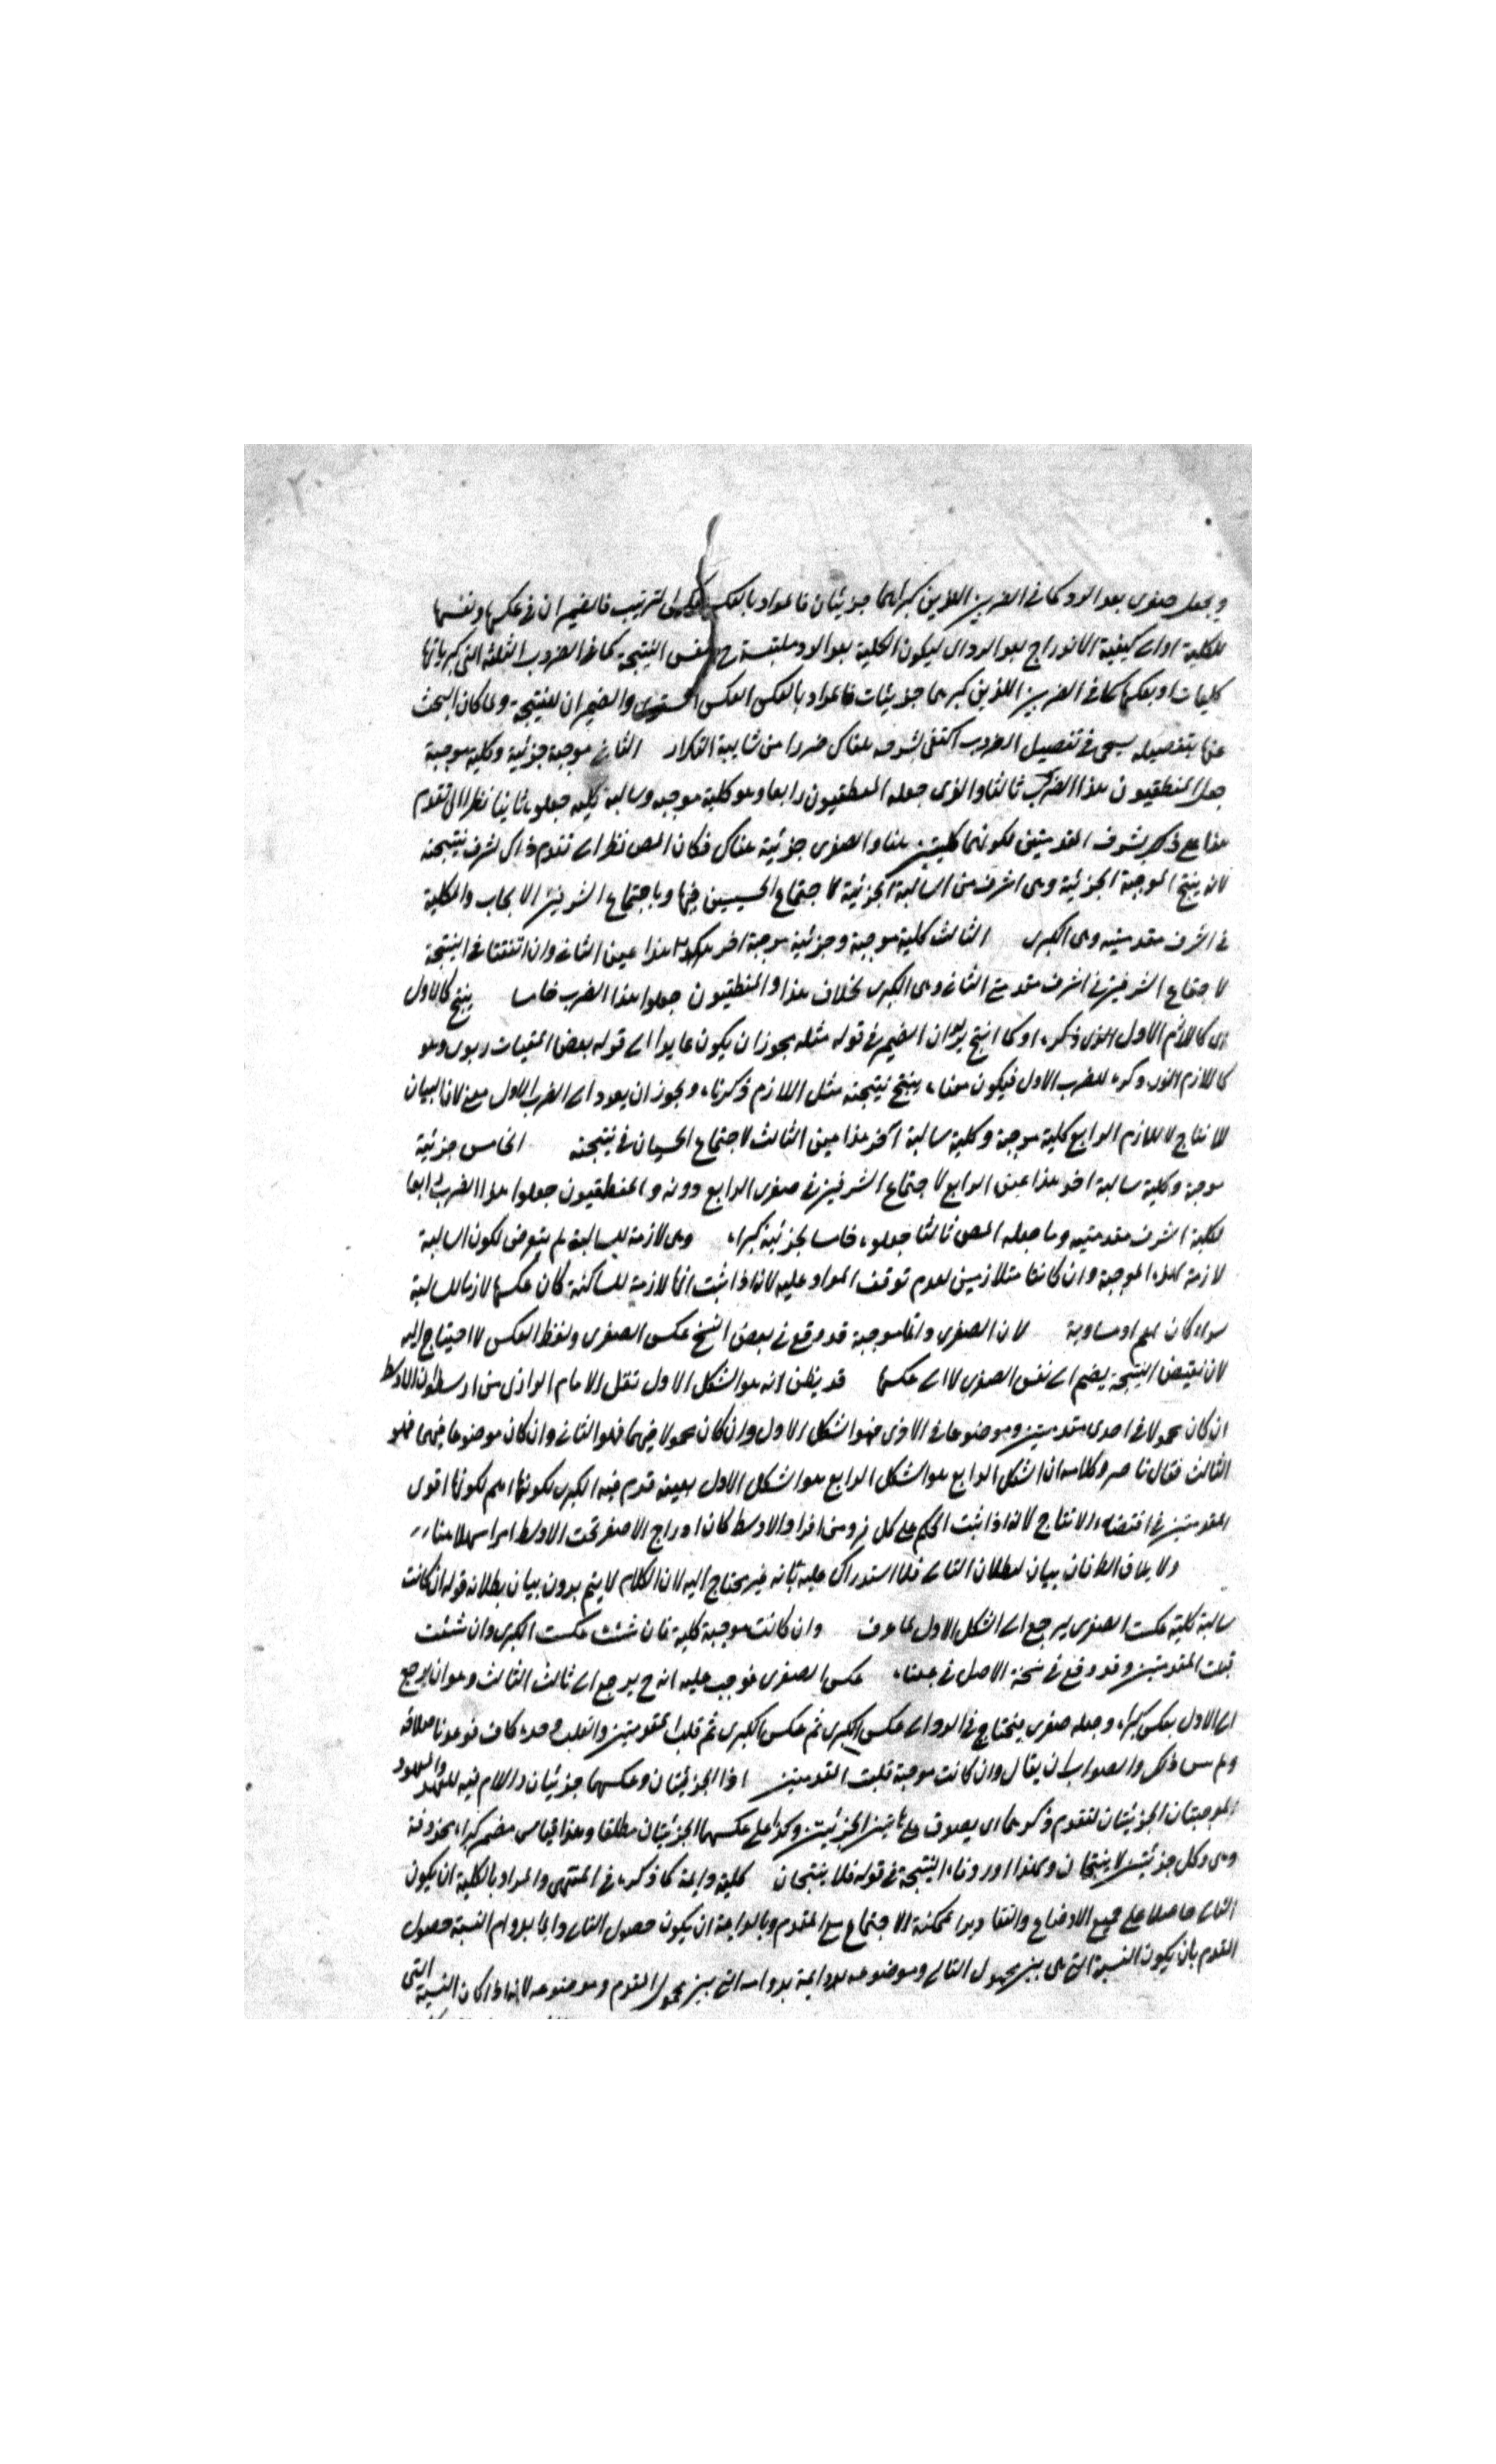 ويجعل صغرى بعد الرد كما في الضربين اللذين كبراهما جزئيتان فالمراد بالعكس الترتيب فالضميران في عكسها ونفسها
للكلية اداء كيفية الاندراج بعد الرد اى ليكون الكلية بعد الرد ملتبسة ح بنفس النتيجة كما في الضروب الثلثة التي كبرياتها
كليات او بعكسها كما في الضربين اللذين كبريهما جزئيات فالمراد بالعكس العكس المستوى والضميران للنتيجة ولما كان البحث
عنها بتفصيله يجئ في تفصيل الضروب اكتفى بشرحه هناك حذرا من شايبة التكرار الثاني موجبة جزئية وكلية موجبة
جعل المنطقيون هذا الضرب ثالثا والذى جعله المنطقيون رابعا وهو كلية موجبة وسالبة كلية جعلوه ثانيا نظرا الى تقدم
هذا على ذكر بشرف المقدمتين لكونهما كليتين هنا والصغرى جزئية هناك فكان المص نظر الى تقدم ذاك لشرف نتيجته
لانه ينتج الموجبة الجزئية وهى اشرف من السالبة الجزئية لاجتماع الخسيسين فيها وباجتماع الشرفين الايجاب والكلية
في اشرف مقدمتيه وهى الكبرى الثالث كلية موجبة وجزئية موجبة اخر هذا عن الثاني وان اتفقتا في النتيجة
لاجتماع الشرفين في اشرف مقدمتي الثاني وهى الكبرى بخلاف هذا والمنطقيون جعلوا هذا الضرب خامسا ينتج كالاول
اى كاللازم الاول الذى ذكره او كما انتج يريد ان الضمير في قوله مثله يجوز ان يكون عايدا الى قوله بعض المقتات ربوى وهو
كاللازم الذى ذكره للضرب الاول فيكون معناه ينتج نتيجته مثل اللازم ذكرناه ويجوز ان يعود الى الضرب الاول لان البيان
للانتاج لا للازم الرابع كلية موجبة وكلية سالبة آخر هذا عن الثالث لاجتماع الخسيسان في نتيجته الخامس جزئية
موجبة وكلية سالبة اخر هذا عن الرابع لاجتماع الشرفين في صغرى الرابع دونه والمنطقيون جعلوا هذا الضرب رابعا
لكلية اشرف مقدمتيه وما جعله المص ثالثا جعلوه خامسا لجزئية كبراه وهى لازمة للسالبة لم يتعرض لكون السالبة
لازمة لهذه الموجبة وان كانتا متلازمين لعدم توقف المراد عليه لانه اذا ثبت انها لازمة للساكنة كان عكسها لازما للسالبة
سواء كان اعم او مساوية لان الصغرى دائما موجبة قد وقع في بعض النسخ عكس الصغرى ولفظ العكس لا احتياج اليه
لان نقيض النتيجة يضم الى نفس الصغرى لا الى عكسها قد يظن انه هو الشكل الاول نقل الامام الرازى عن ارسطو ان الاوسط
ان كان محمولا في احدى مقدمتين وموضوعا في الاخرى فهو الشكل الاول وان كان محمولا فيهما فهو الثاني وان كان موضوعا فيهما فهو
الثالث فقال ناصر وكلامه ان الشكل الرابع هو الشكل الرابع هو الشكل الاول بعينه قدم فيه الكبرى لكونها اهم لكونها اقوى
المقدمتين في اقتضاء الانتاج لانه اذا ثبت الحكم على كل فرد من افراد الاوسط كان ادراج الاصغر تحت الاوسط امرا سهلا هنا
ولا يلاقى الطرفان بيان لبطلان التالي فلا استدراك عليه بانه غير محتاج اليه لان الكلام لا يتم بدون بيان بطلانه قوله ان كانت
سالبة كلية عكست الصغرى يرجع الى الشكل الاول لما عرف وان كانت موجبة كلية فان شئت عكست الكبرى وان شئت
قلبت المقدمتين وقد وقع في نسخة الاصل في جعلناه عكس الصغرى فوجب عليه انه ح يرجع الى ثالث الثالث وهو ان يرجع
الى الاول بعكس كبراه وجعله صغرى فيحتاج في الرد الى عكس الكبرى ثم عكس الكبرى ثم قلب المقدمتين والقلب وحده كاف
وليس ذلك والصواب ان يقال وان كانت موجبة قلبت المقدمتين اذ الجزئيتان وعكسهما جزئيتان واللام فيه للعهد والمعهود
الموجبتان الجزئيتان لتقدم ذكرهما اى يصدق على هاتين الجزئيتين وكذا على عكسهما الجزئيتان مطلقا وهذا قياس مضمر كبراه محذوفة
وهى وكل جزئيتين لا ينتجان ولهذا اورد فاء النتيجة في قوله فلا ينتجان كلية دايمة كما ذكره في المنتهى والمراد بالكلية ان يكون
التالي حاصلا على جميع الاوضاع والتقادير الممكنة الاجتماع مع المقدم وبالدايمة ان يكون حصول التالي دايما بدوام النسبة حصول
المقدم بان يكون النسبة التي هى بين محمول التالي وموضوعه دايمة بدوام التي بين محمول المقدم وموضوعه لانه اذا كان النسبة التي